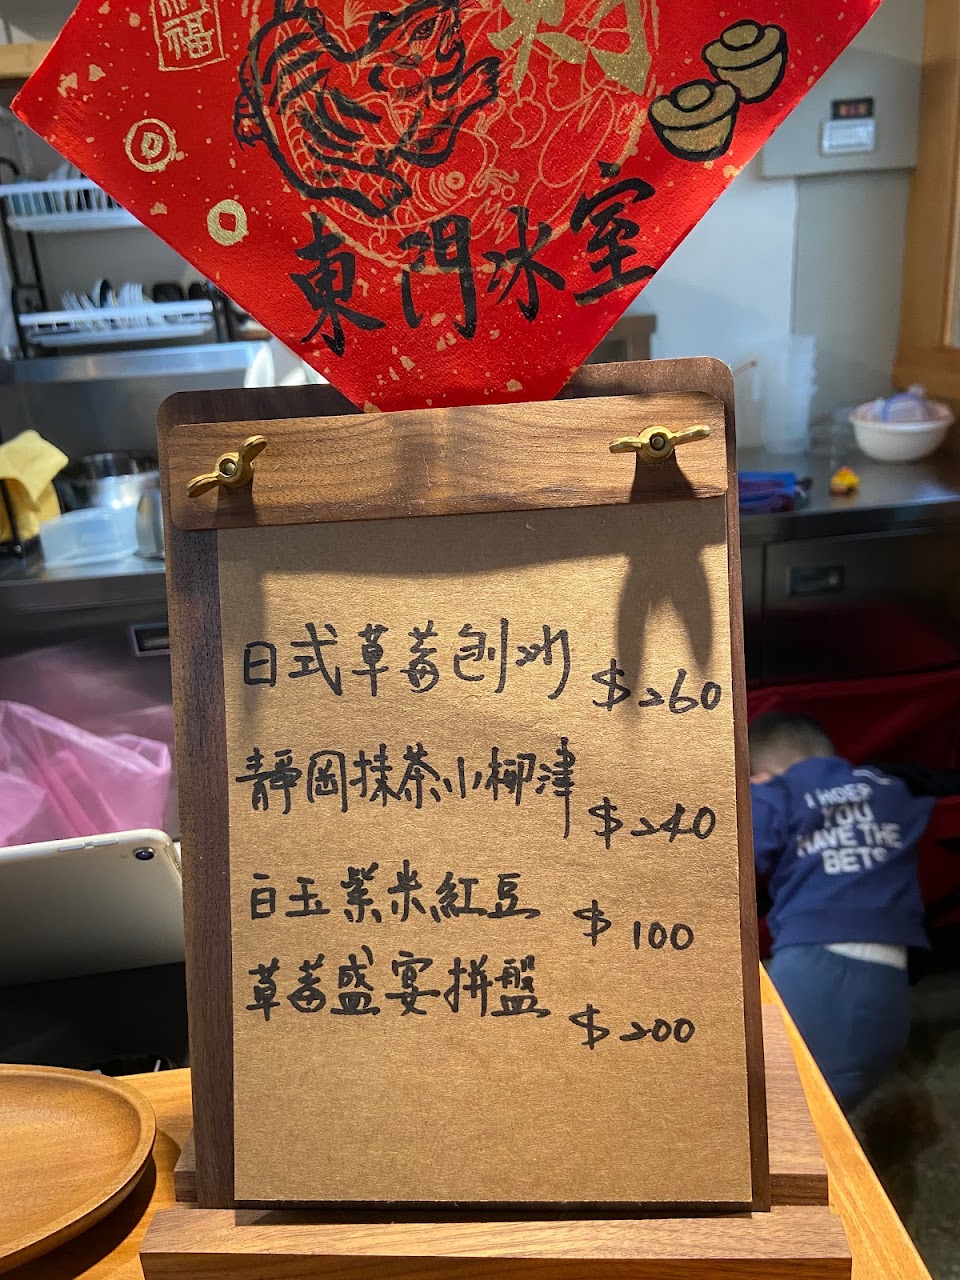 福
財
東門冰室
日式草莓刨冰 $260
靜岡抹茶小柳津 $240
白玉紫米紅豆 $100
草莓盛宴拼盤 $200
I
YOU
HAVE THE
BETS